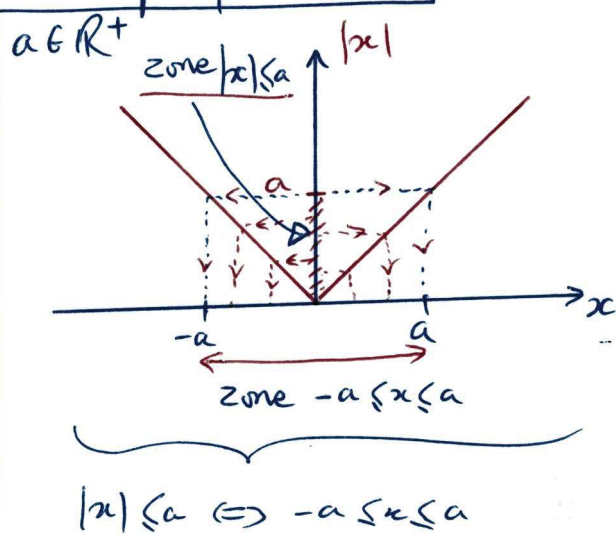 a ∈ ℝ⁺
|x|
zone |x| ≤ a
a
-a
a
x
zone -a ≤ x ≤ a
|x| ≤ a ⇔ -a ≤ x ≤ a